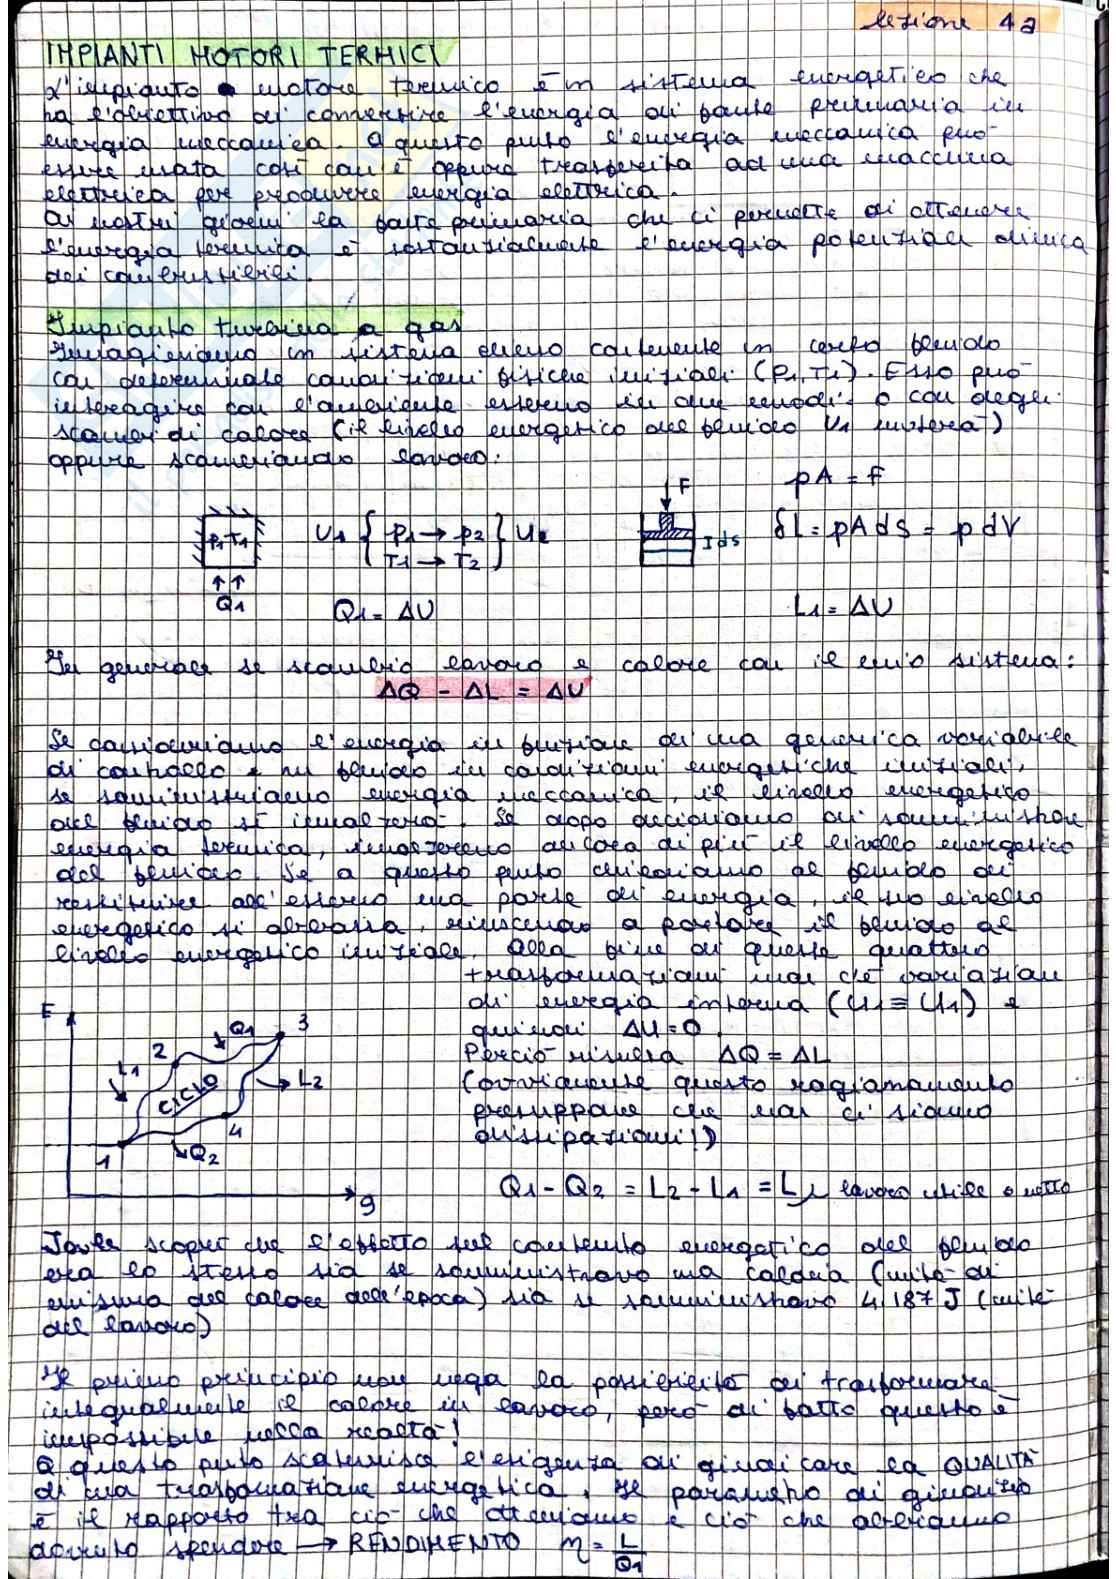 lezione 4a
IMPIANTI MOTORI TERMICI
L'impianto motore termico è un sistema energetico che
ha l'obiettivo di convertire l'energia di fonte primaria in
energia meccanica. A questo punto l'energia meccanica può
essere usata così com'è oppure trasferita ad una macchina
elettrica per produrre energia elettrica.
Ai nostri giorni la fonte primaria che ci permette di ottenere
l'energia termica è sostanzialmente l'energia potenziale chimica
dei combustibili.
Impianto turbina a gas
Immaginiamo un sistema chiuso contenente un certo fluido
con determinate condizioni fisiche iniziali (P1,T1). Esso può
interagire con l'ambiente esterno in due modi: o con degli
scambi di calore (il livello energetico del fluido U1 muterà)
oppure scambiando lavoro:
F
pA = F
P1 T1
U1 { p1 → p2 } U2
T1 → T2
ds
δL = pAds = pdV
Q1
Q1 = ΔU
L1 = ΔU
In generale se scambio lavoro e calore con il mio sistema:
ΔQ - ΔL = ΔU
Se consideriamo l'energia in funzione di una generica variabile
di controllo e un fluido in condizioni energetiche iniziali,
se somministriamo energia meccanica, il livello energetico
del fluido si innalzerà. Se dopo decidiamo di somministrare
energia termica, innalzeremo ancora di più il livello energetico
del fluido. Se a questo punto chiediamo al fluido di
restituire all'esterno una parte di energia, il suo livello
energetico si abbassa, riuscendo a portare il fluido al
livello energetico iniziale. Alla fine di queste quattro
trasformazioni non c'è variazione
di energia interna (U1 ≡ U1) e
quindi ΔU = 0.
Perciò risulta ΔQ = ΔL
(ovviamente questo ragionamento
presuppone che non ci siano
dissipazioni!)
E
Q1
3
2
L1
CICLO
L2
4
1
Q2
g
Q1 - Q2 = L2 - L1 = L lavoro utile o netto
Joule scoprì che l'effetto sul contenuto energetico del fluido
era lo stesso sia se somministravo una caloria (unità di
misura del calore dell'epoca) sia se somministravo 4,187 J (unità
del lavoro)
Il primo principio non nega la possibilità di trasformare
integralmente il calore in lavoro, però di fatto questo è
impossibile nella realtà!
A questo punto scaturisce l'esigenza di giudicare la QUALITÀ
di una trasformazione energetica. Il parametro di giudizio
è il rapporto tra ciò che otteniamo e ciò che abbiamo
dovuto spendere → RENDIMENTO η = L/Q1